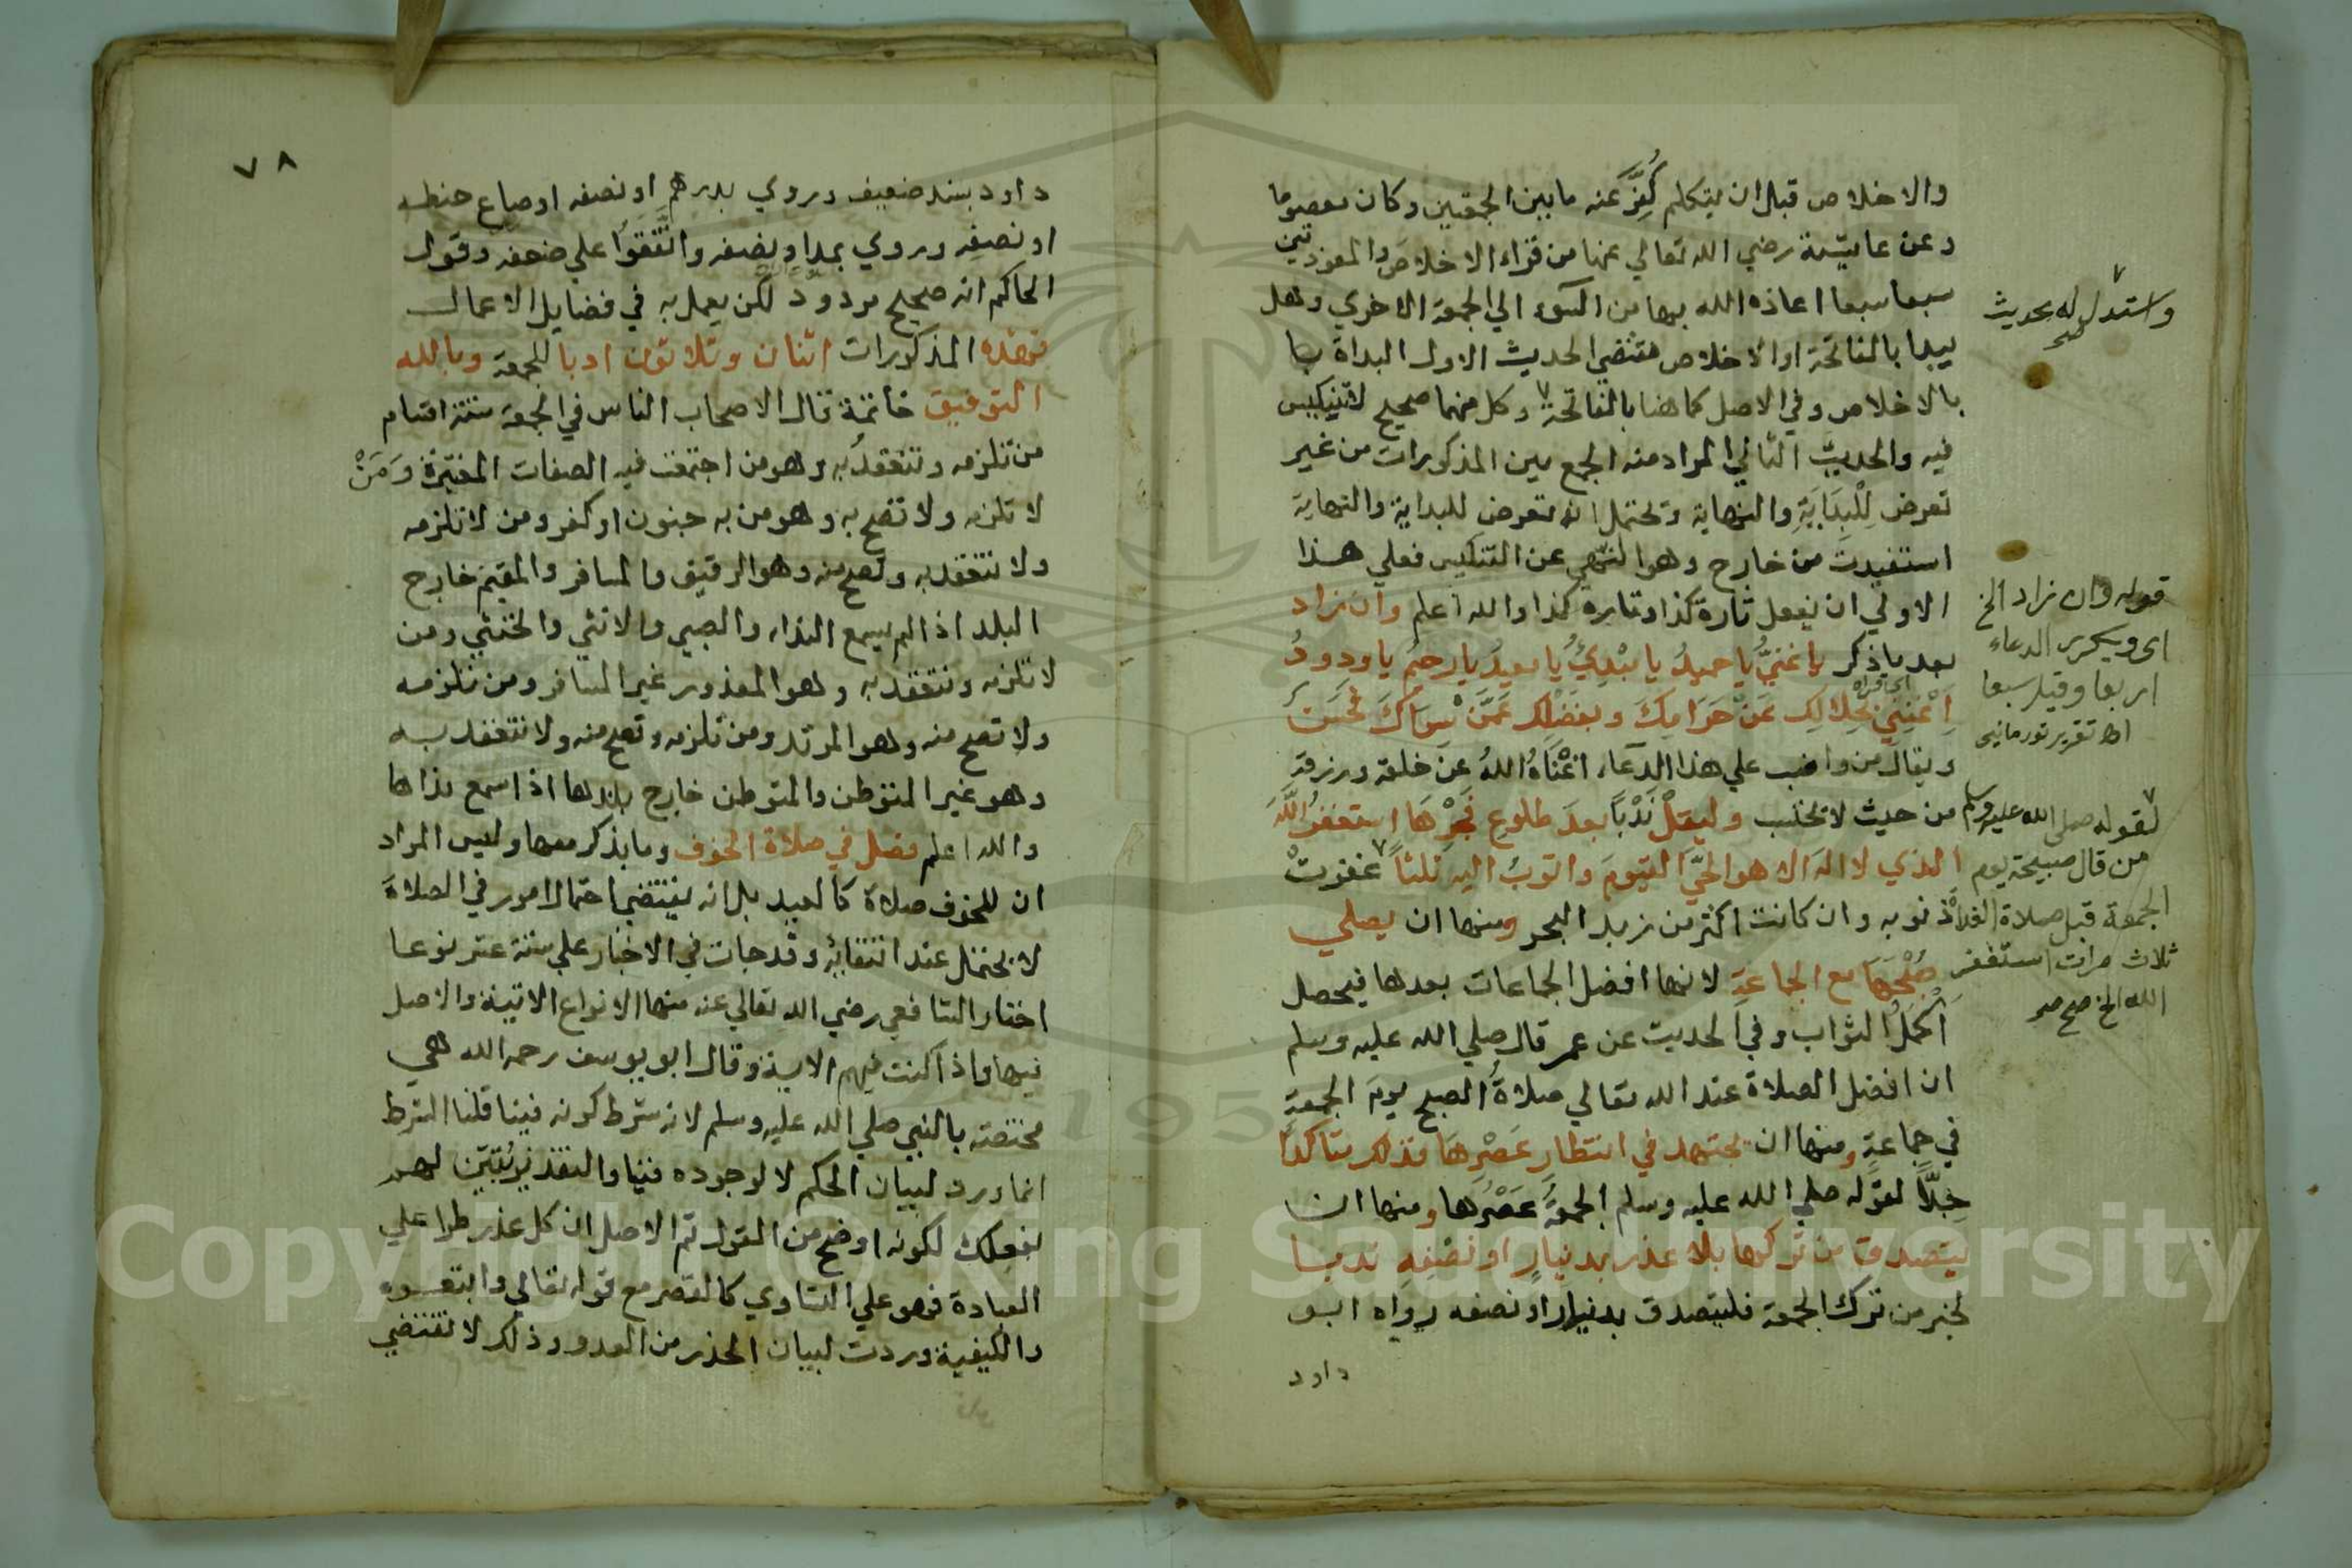 والاخلاص قبل ان يتكلم كُفِّرَ عنه ما بين الجمعتين وكان معصوما
وعن عايشة رضي الله تعالي عنها من قراء الاخلاص والمعوذتين
سبعا سبعا اعاذه الله بها من السوء الي الجمعة الاخري وهل
يبدا بالفاتحة او الاخلاص مقتضي الحديث الاول البداة بها
بالاخلاص وفي الاصل كما هنا بالفاتحة وكل منهما صحيح
فيه والحديث الثاني المراد منه الجمع بين المذكورات من غير
تعرض لِلْبِدَايَةِ والنهاية ويحتمل انه تعرض للبداية والنهاية
استفيدت من خارج وهو النهي عن التنكيس فعلي هذا
الاولي ان يفعل تارة كذا وتاره كذا والله اعلم وان زاد
بعد ما ذكر يا غنيُّ يا حميدُ يا مبْدِيُ يا معيدُ يا رحيمُ يا ودودُ
اَغْنِنِي بحلالِك عَنْ حَرَامِكَ وبفَضْلِكَ عَمَّنْ سِوَاكَ فحَسَن
ويقال من واضب علي هذا الدعاء اغْنَاهُ اللهُ عن خلقه ورزقه
من حيث لا يحتسب وليقلْ نَدْبًا بعدَ طلوعِ فَجْرِهَا استغفرُ اللهَ
الذي لا اله الا هو الحيَّ القيومَ واتوبُ اليه ثلثاً غفرتْ
ذنوبه وان كانت اكثر من زبد البحر ومنها ان يصلي
صُبْحَهَا مع الجماعةِ لانها افضل الجماعات بعدها فيحصل
اَكْمَلُ الثواب وفي الحديث عن عمر قال صلي الله عليه وسلم
ان افضل الصلاة عند الله تعالي صلاةُ الصبح يومَ الجمعةِ
في جماعةٍ ومنها ان يجتهد في انتظارِ عَصْرِهَا فذلك متاكدا
جِدًّا لقوله صلي الله عليه وسلم الجمعةُ عَصْرُها ومنها ان
يتصدق من تركها بلا عذر بدينارٍ او نصْفِهِ ندبا
لخبر من ترك الجمعة فليتصدق بدينار او نصفه رواه ابو
داود
واستدل له بحديث
صح
قوله وان زاد الخ
اى ويكرر الدعاء
اربعا وقيل سبعا
اه تقرير
لقوله صلى الله عليه وسلم
من قال صبيحة يوم
الجمعة قبل صلاة الغداة
ثلاث مرات استغفر
الله الخ صح
٧٨
داود بسند ضعيف وروي بدرهم او نصفه او صاع حنطه
او نصفه وروي بمد او نصفه واتَّفقوا علي ضعفه وقول
الحاكم انه صحيح مردود لكن يعمل به في فضايل الاعمال
فهذه المذكورات اثنان وثلاثون ادبا للجمعة وبالله
التوفيق خاتمة قال الاصحاب الناس في الجمعة ستة اقسام
من تلزمه وتنعقد به وهو من اجتمعت فيه الصفات المعتبرة وَمَنْ
لا تلزمه ولا تصح به وهو من به جنون او كفر ومن لا تلزمه
ولا تنعقد به وتصح منه وهو الرقيق والمسافر والمقيم خارج
البلد اذا لم يسمع النداء والصبي والانثي والخنثي ومن
لا تلزمه وتنعقد به وهو المعذور غير المسافر ومن تلزمه
ولا تصح منه وهو المرتد ومن تلزمه وتصح منه ولا تنعقد به
وهو غير المتوطن والمتوطن خارج بلدها اذا سمع نداها
والله اعلم فصل في صلاة الخوف وما يذكر معها وليس المراد
ان للخوف صلاة كالعيد بل انه يقتضي احتمال امور في الصلاة
لا تحتمل عند انتفائه وقد جات في الاخبار علي ستة عشر نوعا
اختار الشافعي رضي الله تعالي عنه منها الانواع الاتية والاصل
فيها واذا كنت فيهم الاية وقال ابو يوسف رحمه الله هي
مختصة بالنبي صلي الله عليه وسلم لانه شرط كونه فينا قلنا الشرط
انما ورد لبيان الحكم لا لوجوده فينا والتقدير بُيِّنَ لهم
بفعلك لكونه اوضح من القول ثم الاصل ان كل عذر طرا علي
العبادة فهو علي التساوي كالقصر مع قوله تعالي واتبعوه
والكيفية وردت لبيان الحذر من العدو وذلك لا تقتضي
Copyright © King Saud University
195